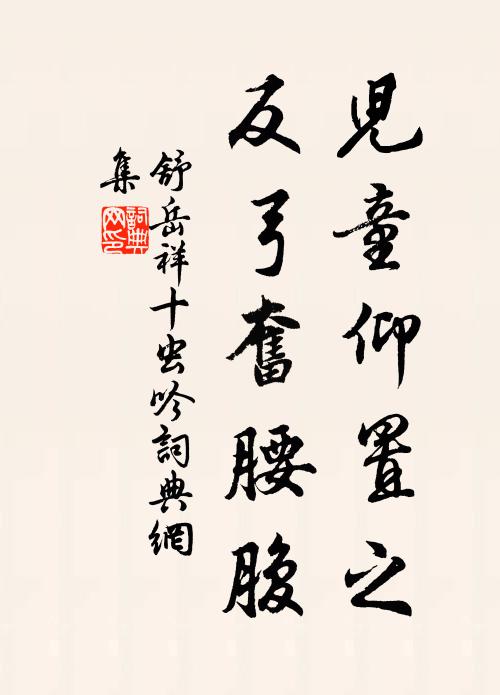 兒童仰置之
反弓奮腰腹
舒岳祥十虫吟詞典網
集
詞典
网印